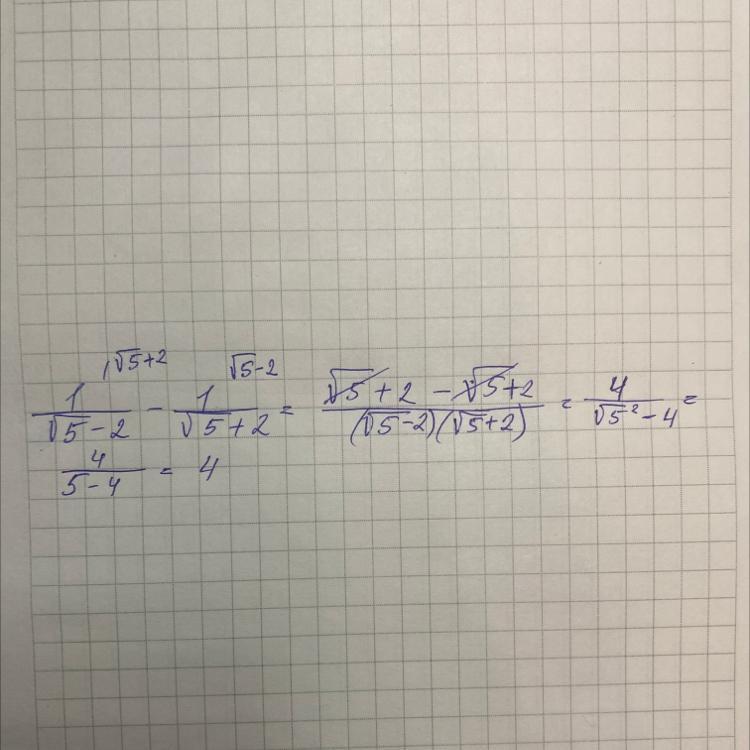 1/(√5-2) ^(√5+2) - 1/(√5+2) ^(√5-2) = (√5+2-√5+2)/((√5-2)(√5+2)) = 4/(√5²-4) =
4/(5-4) = 4